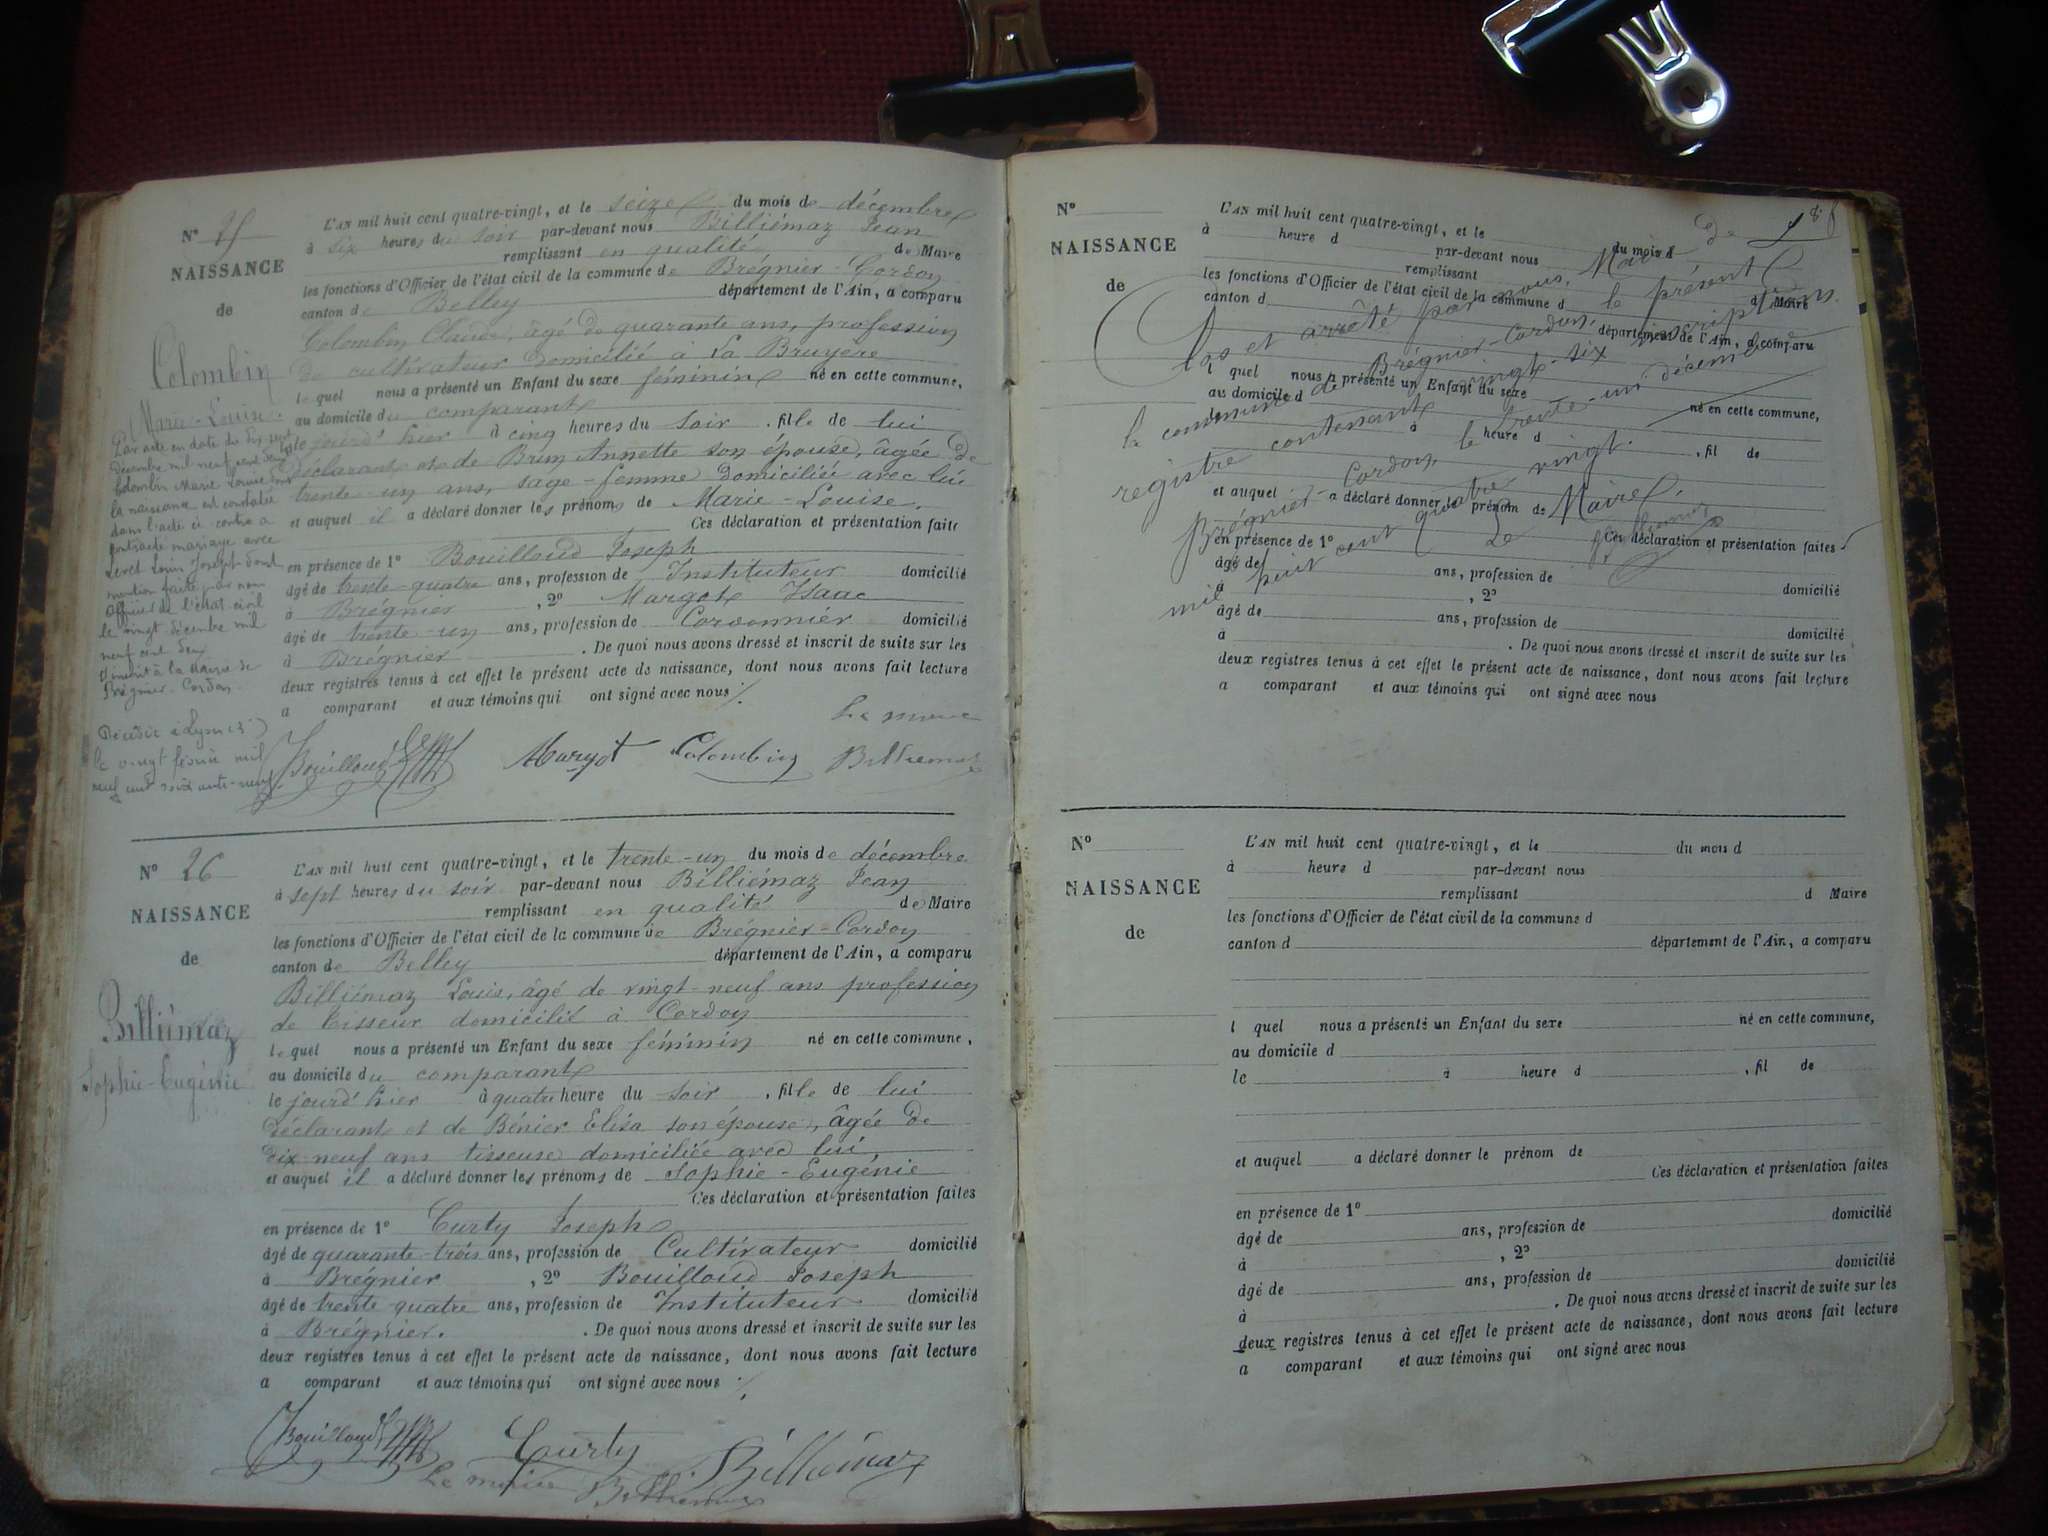 N° 25
NAISSANCE
de
Colombin
Marie-Louise.
Par acte en date du dix sept
décembre mil neuf cent deux
Colombin Marie Louise dont
la naissance est constatée
dans l'acte ci contre a
contracté mariage avec
Louis Joseph dont
mention faite par nous
Officier de l'état civil
le vingt décembre mil
neuf cent deux
à la Mairie de
Brégnier-Cordon.
Décédée à Lyon 3
le vingt février mil
neuf cent soixante-neuf
L'AN mil huit cent quatre-vingt, et le seize du mois de décembre
à six heures du soir par-devant nous Billiémaz Jean
remplissant en qualité de Maire
les fonctions d'Officier de l'état civil de la commune de Brégnier-Cordon
canton de Belley département de l'Ain, a comparu
Colombin Claude, âgé de quarante ans, profession
de cultivateur domicilié à La Bruyère
lequel nous a présenté un Enfant du sexe féminin né en cette commune,
au domicile du comparant
le jourd'hier à cinq heures du soir, fille de lui
déclarant et de Brun Annette son épouse, âgée de
trente-un ans, sage-femme domiciliée avec lui
et auquel il a déclaré donner les prénoms de Marie-Louise.
Ces déclaration et présentation faites
en présence de 1° Bouilloud Joseph
âgé de trente-quatre ans, profession de Instituteur domicilié
à Brégnier, 2° Margot Isaac
âgé de trente-un ans, profession de Cordonnier domicilié
à Brégnier. De quoi nous avons dressé et inscrit de suite sur les
deux registres tenus à cet effet le présent acte de naissance, dont nous avons fait lecture
a comparant et aux témoins qui ont signé avec nous ./.
Le maire
Bouilloud Margot Colombin Billiemaz
N° 26
NAISSANCE
de
Billiémaz
Sophie-Eugénie
L'AN mil huit cent quatre-vingt, et le trente-un du mois de décembre
à sept heures du soir par-devant nous Billiémaz Jean
remplissant en qualité de Maire
les fonctions d'Officier de l'état civil de la commune de Brégnier-Cordon
canton de Belley département de l'Ain, a comparu
Billiémaz Louis, âgé de vingt-neuf ans profession
de tisseur domicilié à Cordon
lequel nous a présenté un Enfant du sexe féminin né en cette commune,
au domicile du comparant
le jourd'hier à quatre heure du soir, fille de lui
déclarant et de Bénier Elisa son épouse, âgée de
dix-neuf ans tisseuse domiciliée avec lui
et auquel il a déclaré donner les prénoms de Sophie-Eugénie
Ces déclaration et présentation faites
en présence de 1° Curty Joseph
âgé de quarante-trois ans, profession de Cultivateur domicilié
à Brégnier, 2° Bouilloud Joseph
âgé de trente-quatre ans, profession de Instituteur domicilié
à Brégnier. De quoi nous avons dressé et inscrit de suite sur les
deux registres tenus à cet effet le présent acte de naissance, dont nous avons fait lecture
a comparant et aux témoins qui ont signé avec nous ./.
Bouilloud Curty Billiémaz
Le maire Billiemaz
N°
NAISSANCE
de
L'AN mil huit cent quatre-vingt, et le du mois d
à heure d par-devant nous
remplissant d Maire
les fonctions d'Officier de l'état civil de la commune d
canton d département de l'Ain, a comparu
l quel nous a présenté un Enfant du sexe né en cette commune,
au domicile d
le à heure d , fil de
et auquel a déclaré donner le prénom de
Ces déclaration et présentation faites
en présence de 1°
âgé de ans, profession de domicilié
à , 2°
âgé de ans, profession de domicilié
à . De quoi nous avons dressé et inscrit de suite sur les
deux registres tenus à cet effet le présent acte de naissance, dont nous avons fait lecture
a comparant et aux témoins qui ont signé avec nous
Clos et arrêté par nous, Maire de
la commune de Brégnier-Cordon, le présent
registre contenant vingt-six inscriptions.
Brégnier-Cordon, le trente-un décembre
mil huit cent quatre vingt.
Le Maire,
Billiemaz
N°
NAISSANCE
de
L'AN mil huit cent quatre-vingt, et le du mois d
à heure d par-devant nous
remplissant d Maire
les fonctions d'Officier de l'état civil de la commune d
canton d département de l'Ain, a comparu
l quel nous a présenté un Enfant du sexe né en cette commune,
au domicile d
le à heure d , fil de
et auquel a déclaré donner le prénom de
Ces déclaration et présentation faites
en présence de 1°
âgé de ans, profession de domicilié
à , 2°
âgé de ans, profession de domicilié
à . De quoi nous avons dressé et inscrit de suite sur les
deux registres tenus à cet effet le présent acte de naissance, dont nous avons fait lecture
a comparant et aux témoins qui ont signé avec nous